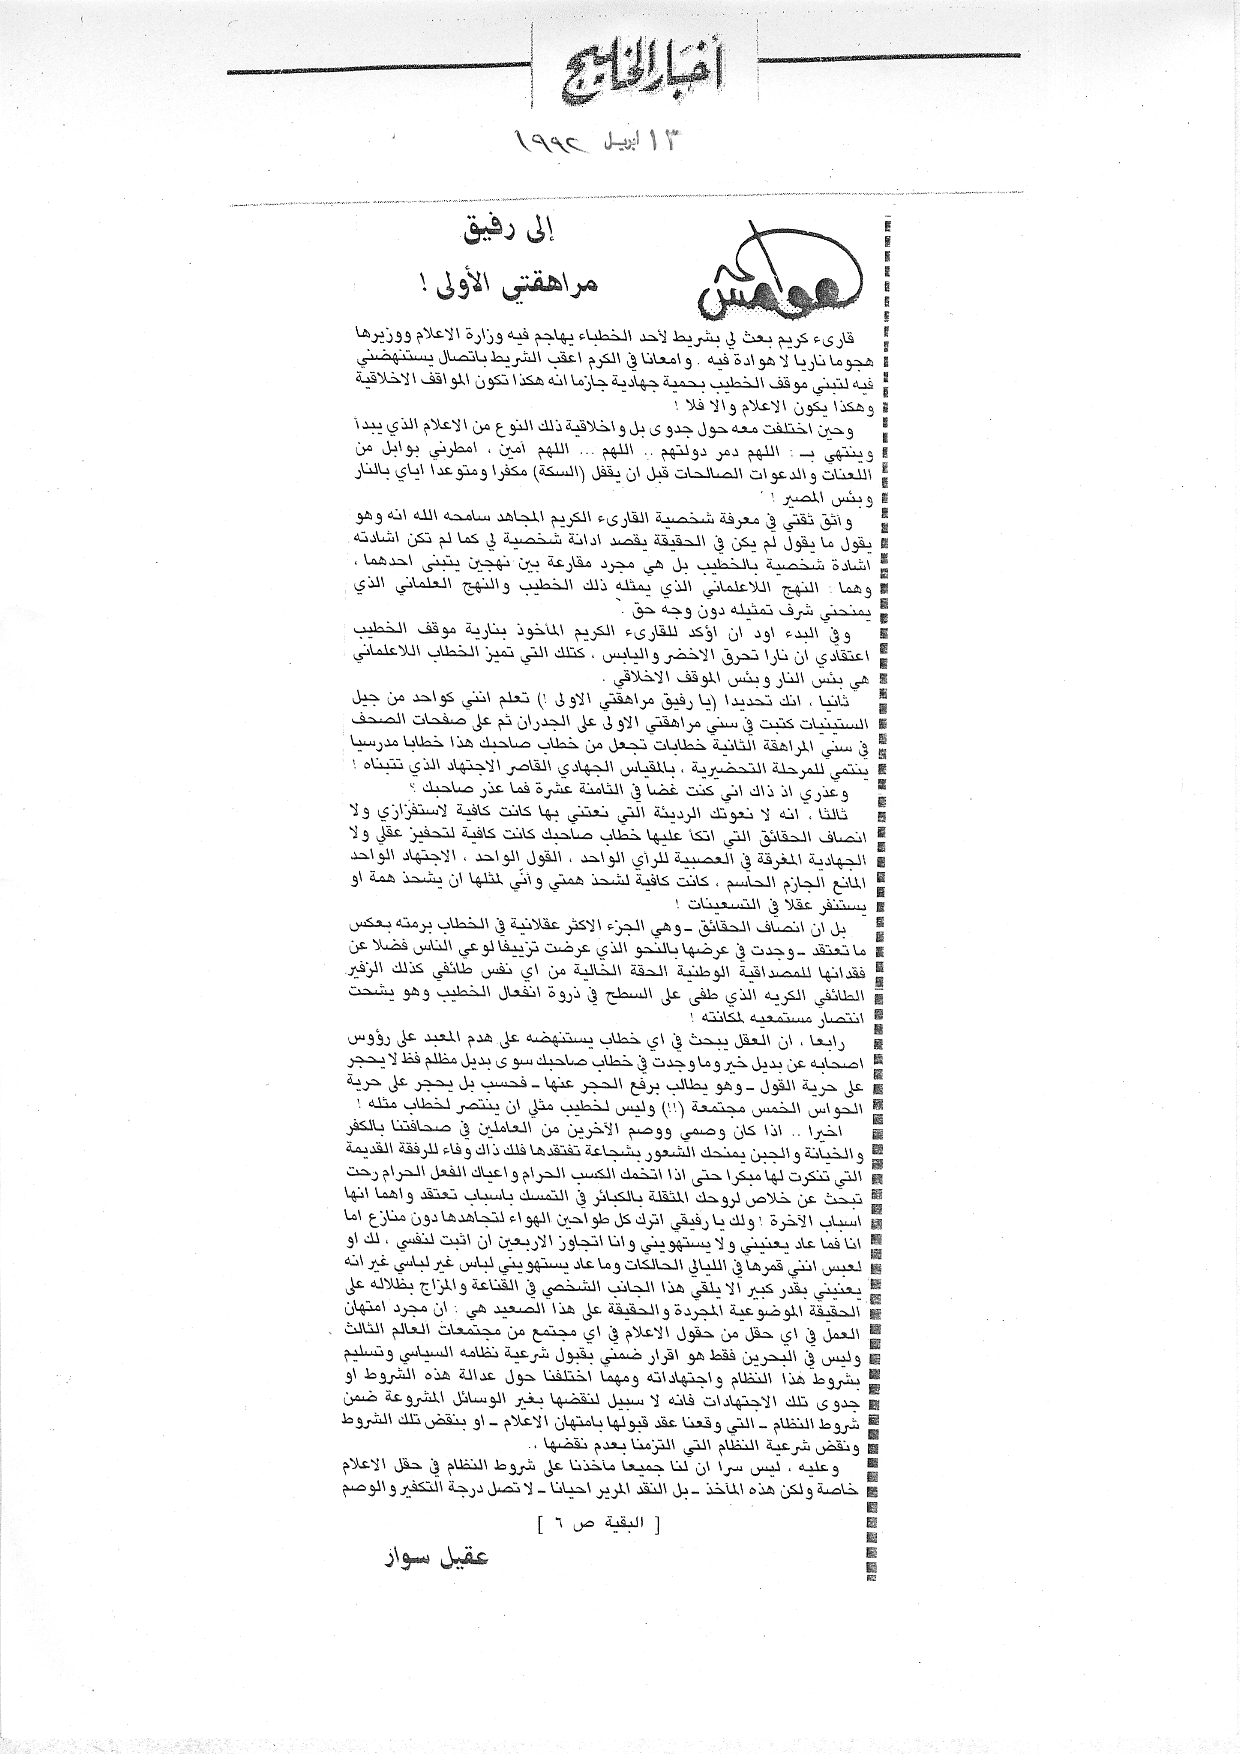 أخبار الخليج
١٣ ابريل ١٩٩٢
هوامش
إلى رفيق
مراهقتي الأولى !
قارىء كريم بعث لي بشريط لأحد الخطباء يهاجم فيه وزارة الاعلام ووزيرها
هجوما ناريا لا هوادة فيه . وامعانا في الكرم اعقب الشريط باتصال يستنهضني
فيه لتبني موقف الخطيب بحمية جهادية جازما انه هكذا تكون المواقف الاخلاقية
وهكذا يكون الاعلام والا فلا !
وحين اختلفت معه حول جدوى بل واخلاقية ذلك النوع من الاعلام الذي يبدأ
وينتهي بـ : اللهم دمر دولتهم .. اللهم ... اللهم آمين ، امطرني بوابل من
اللعنات والدعوات الصالحات قبل ان يقفل (السكة) مكفرا ومتوعدا اياي بالنار
وبئس المصير !
واثق ثقتي في معرفة شخصية القارىء الكريم المجاهد سامحه الله انه وهو
يقول ما يقول لم يكن في الحقيقة يقصد ادانة شخصية لي كما لم تكن اشادته
اشادة شخصية بالخطيب بل هي مجرد مقارعة بين نهجين يتبنى احدهما ،
وهما : النهج اللاعلماني الذي يمثله ذلك الخطيب والنهج العلماني الذي
يمنحني شرف تمثيله دون وجه حق .
وفي البدء اود ان اؤكد للقارىء الكريم المأخوذ بنارية موقف الخطيب
اعتقادي ان نارا تحرق الاخضر واليابس ، كتلك التي تميز الخطاب اللاعلماني
هي بئس النار وبئس الموقف الاخلاقي .
ثانيا ، انك تحديدا (يا رفيق مراهقتي الاولى !) تعلم انني كواحد من جيل
الستينيات كتبت في سني مراهقتي الاولى على الجدران ثم على صفحات الصحف
في سني المراهقة الثانية خطابات تجعل من خطاب صاحبك هذا خطابا مدرسيا
ينتمي للمرحلة التحضيرية ، بالمقياس الجهادي القاصر الاجتهاد الذي تتبناه !
وعذري اذ ذاك اني كنت غضا في الثامنة عشرة فما عذر صاحبك ؟
ثالثا ، انه لا نعوتك الرديئة التي نعتني بها كانت كافية لاستفزازي ولا
انصاف الحقائق التي اتكأ عليها خطاب صاحبك كانت كافية لتحفيز عقلي ولا
الجهادية المغرقة في العصبية للرأي الواحد ، القول الواحد ، الاجتهاد الواحد
المانع الجازم الحاسم ، كانت كافية لشحذ همتي وأنّي لمثلها ان يشحذ همة او
يستنفر عقلا في التسعينات !
بل ان انصاف الحقائق ـ وهي الجزء الاكثر عقلانية في الخطاب برمته بعكس
ما تعتقد ـ وجدت في عرضها بالنحو الذي عرضت تزييفا لوعي الناس فضلا عن
فقدانها للمصداقية الوطنية الحقة الخالية من اي نفس طائفي كذلك الزفير
الطائفي الكريه الذي طفى على السطح في ذروة انفعال الخطيب وهو يشحت
انتصار مستمعيه لمكانته !
رابعا ، ان العقل يبحث في اي خطاب يستنهضه على هدم المعبد على رؤوس
اصحابه عن بديل خير وما وجدت في خطاب صاحبك سوى بديل مظلم فظ لا يحجر
على حرية القول ـ وهو يطالب برفع الحجر عنها ـ فحسب بل يحجر على حرية
الحواس الخمس مجتمعة (!!) وليس لخطيب مثلي ان ينتصر لخطاب مثله !
اخيرا .. اذا كان وصمي ووصم الآخرين من العاملين في صحافتنا بالكفر
والخيانة والجبن يمنحك الشعور بشجاعة تفتقدها فلك ذاك وفاء للرفقة القديمة
التي تنكرت لها مبكرا حتى اذا اتخمك الكسب الحرام واعياك الفعل الحرام رحت
تبحث عن خلاص لروحك المثقلة بالكبائر في التمسك باسباب تعتقد واهما انها
اسباب الآخرة ! ولك يا رفيقي اترك كل طواحين الهواء لتجاهدها دون منازع اما
انا فما عاد يعنيني ولا يستهويني وانا اتجاوز الاربعين ان اثبت لنفسي ، لك او
لعبس انني قمرها في الليالي الحالكات وما عاد يستهويني لباس غير لباسي غير انه
يعنيني بقدر كبير الا يلقي هذا الجانب الشخصي في القناعة والمزاج بظلاله على
الحقيقة الموضوعية المجردة والحقيقة على هذا الصعيد هي : ان مجرد امتهان
العمل في اي حقل من حقول الاعلام في اي مجتمع من مجتمعات العالم الثالث
وليس في البحرين فقط هو اقرار ضمني بقبول شرعية نظامه السياسي وتسليم
بشروط هذا النظام واجتهاداته ومهما اختلفنا حول عدالة هذه الشروط او
جدوى تلك الاجتهادات فانه لا سبيل لنقضها بغير الوسائل المشروعة ضمن
شروط النظام ـ التي وقعنا عقد قبولها بامتهان الاعلام ـ او بنقض تلك الشروط
ونقض شرعية النظام التي التزمنا بعدم نقضها ..
وعليه ، ليس سرا ان لنا جميعا مآخذنا على شروط النظام في حقل الاعلام
خاصة ولكن هذه المآخذ ـ بل النقد المرير احيانا ـ لا تصل درجة التكفير والوصم
[ البقية ص ٦ ]
عقيل سوار